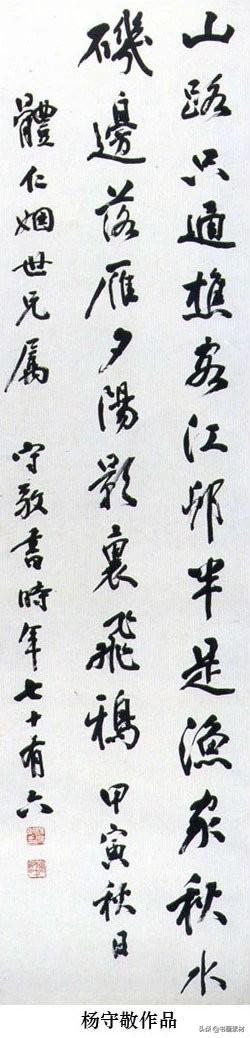 山路只通樵客江邨半是漁家秋水
磯邊落雁夕陽影裏飛鴉 甲寅秋日
體仁姻世兄屬 守敬書時年七十有六
杨守敬作品
头条 @书画素材